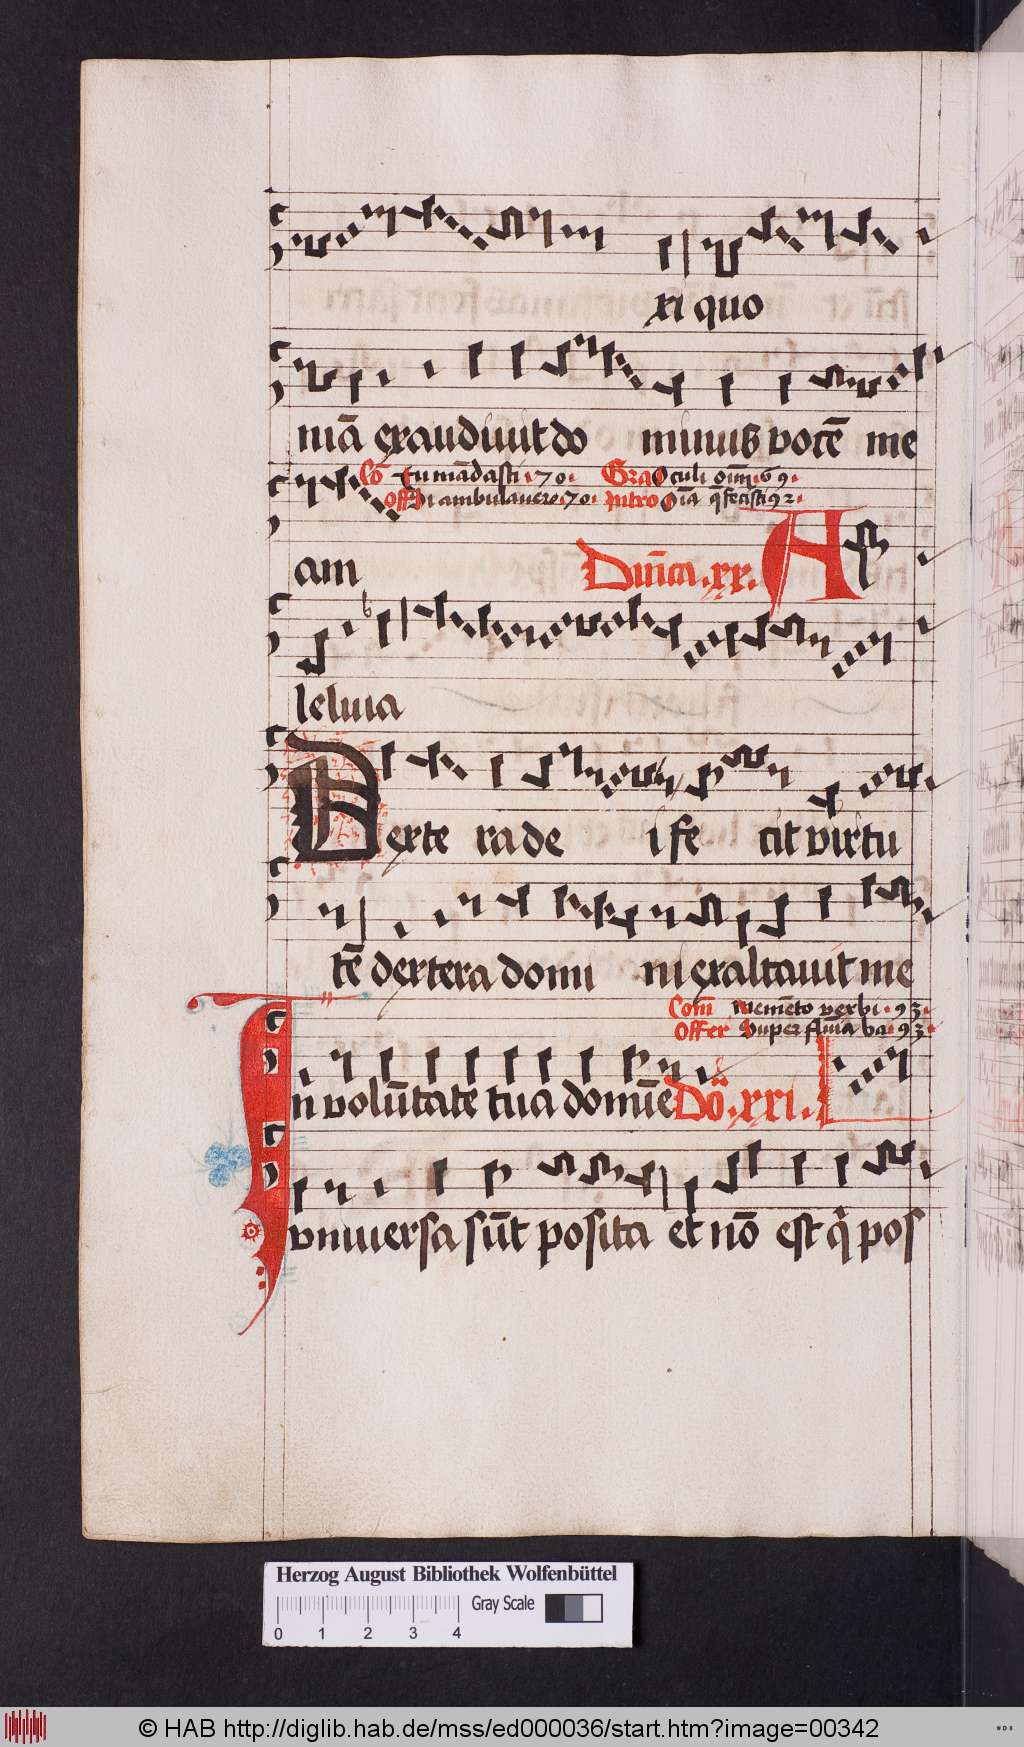 xi quo
niā exaudiuit do minus vocē me
Cō Tu mādasti 70. Gra Oculi oīm 69.
Off Si ambulauero 70. Intro Oīa q fecisti 92.
am Dnīca .xx. A
leluia
Dexte ra de i fe cit virtu
tē dextera domi ni exaltauit me
Com̄ Memēto verbi. 93.
Offer Super flumīa ba. 93.
In volūtate tua domīe Dō. xxi.
vniuersa sūt posita et nō est q̇ pos
Herzog August Bibliothek Wolfenbüttel
Gray Scale
0 1 2 3 4
© HAB http://diglib.hab.de/mss/ed000036/start.htm?image=00342